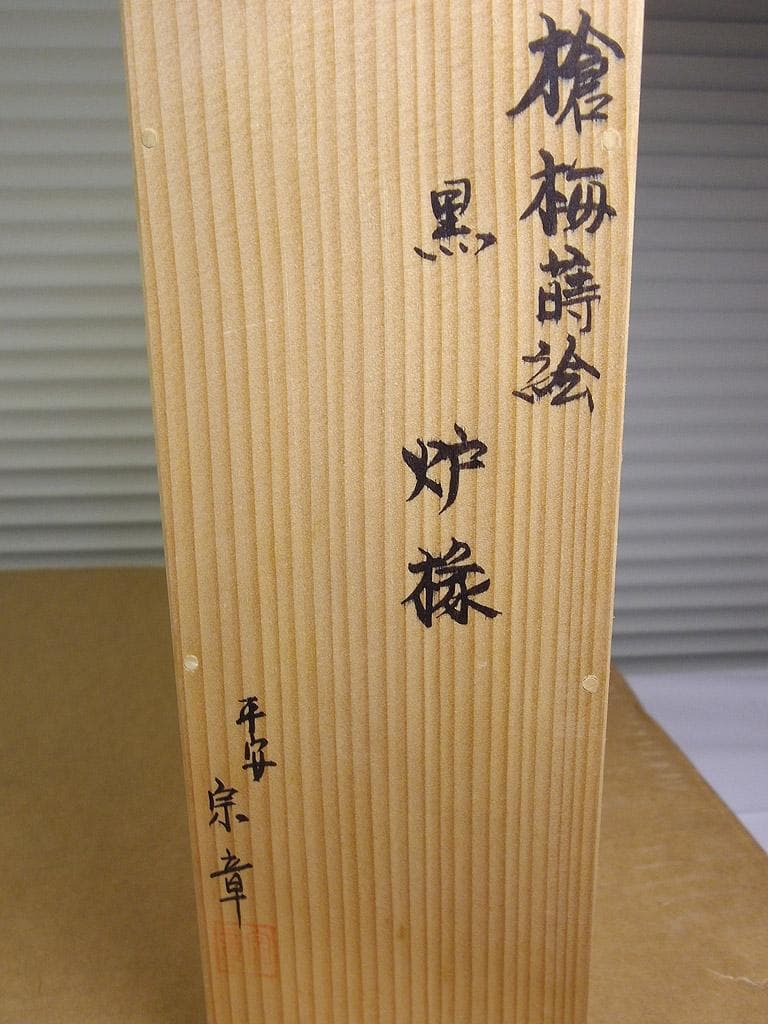 槍梅蒔絵
黒 炉椽
平安
宗章